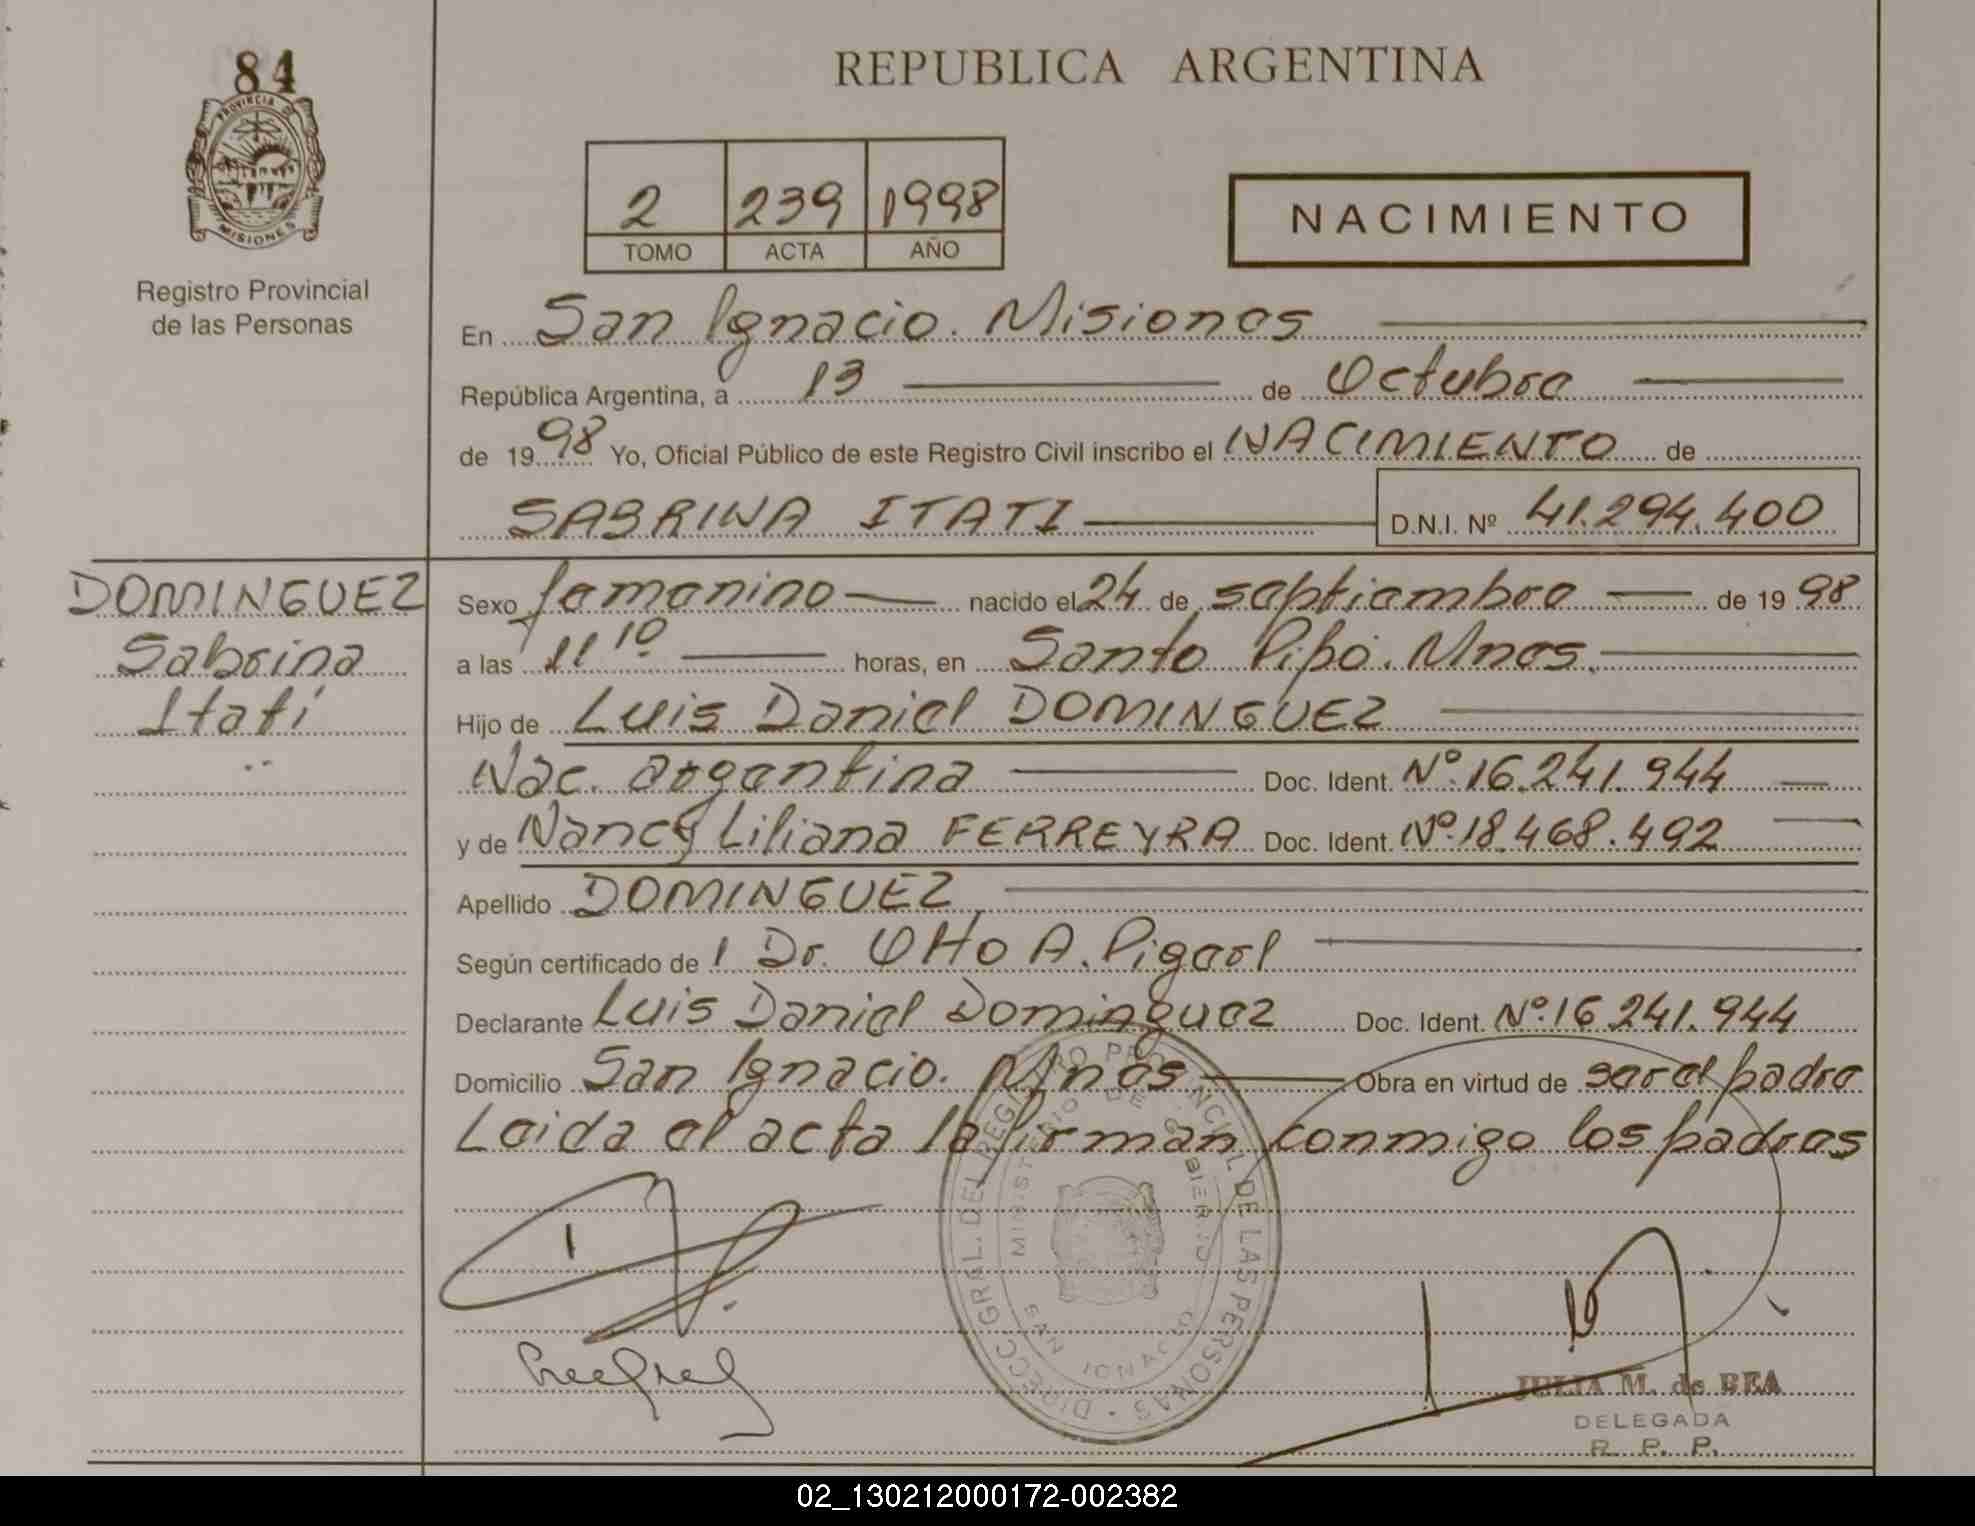 84
REPUBLICA ARGENTINA
PROVINCIA D
MISIONES
Registro Provincial
de las Personas
2 239 1998
TOMO ACTA AÑO
NACIMIENTO
En San Ignacio. Misiones
República Argentina, a 13 de Octubre
de 1998 Yo, Oficial Público de este Registro Civil inscribo el NACIMIENTO de
SABRINA ITATI D.N.I. Nº 41.294.400
DOMINGUEZ
Sabrina
Itatí
Sexo femenino nacido el 24 de septiembre de 1998
a las 11 10 horas, en Santo Pipó. Mnes.
Hijo de Luis Daniel DOMINGUEZ
Nac. argentina Doc. Ident. Nº 16.241.944
y de Nancy Liliana FERREYRA Doc. Ident. Nº 18.468.492
Apellido DOMINGUEZ
Según certificado de 1 Dr. Otto A. Pigerl
Declarante Luis Daniel Dominguez Doc. Ident. Nº 16 241.944
Domicilio San Ignacio. Mnes Obra en virtud de ser el padre
Leida el acta la firman conmigo los padres
DIRECC GRAL. DEL REGISTRO PROVINCIAL DE LAS PERSONAS
MINISTERIO DE GOBIERNO
SAN IGNACIO
JULIA M. de BEA
DELEGADA
R. P. P.
02_130212000172-002382